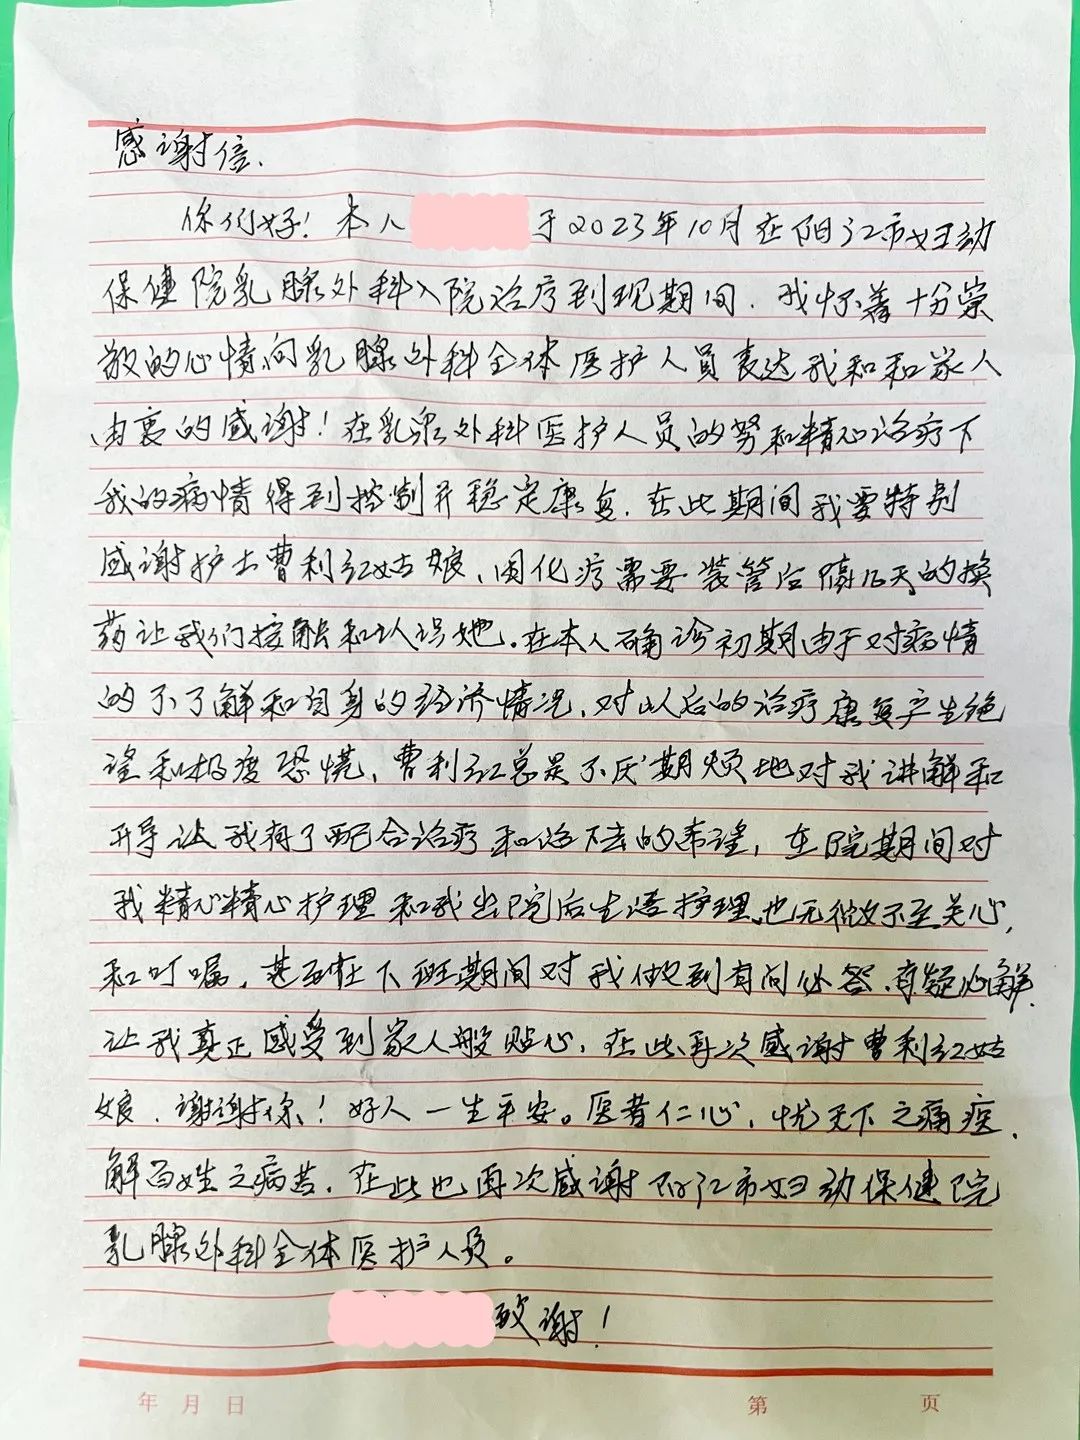 感谢信.
你们好！本人 于2023年10月在阳江市妇动
保健院乳腺外科入院治疗到现期间.我怀着十分崇
敬的心情向乳腺外科全体医护人员表达我和和家人
由衷的感谢！在乳腺外科医护人员的努和精心治疗下
我的病情得到控制并稳定康复.在此期间我要特别
感谢护士曹利红姑娘、因化疗需要装管后隔几天的换
药让我们接触和认识她.在本人确诊初期由于对病情
的不了解和自身的经济情况,对以后的治疗康复产生绝
望和极度恐慌、曹利红总是不厌期烦地对我讲解和
开导让我有了配合治疗和活下去的希望,在院期间对
我精心精心护理和我出院后生活护理也无微不至关心,
和叮嘱.甚至在下班期间对我做到有问必答.有疑必解.
让我真正感受到家人般贴心,在此再次感谢曹利红姑
娘.谢谢你！好人一生平安。医者仁心,忧天下之痛疾.
解百姓之病苦.在此也再次感谢阳江市妇动保健院
乳腺外科全体医护人员。
致谢！
年 月 日 第 页